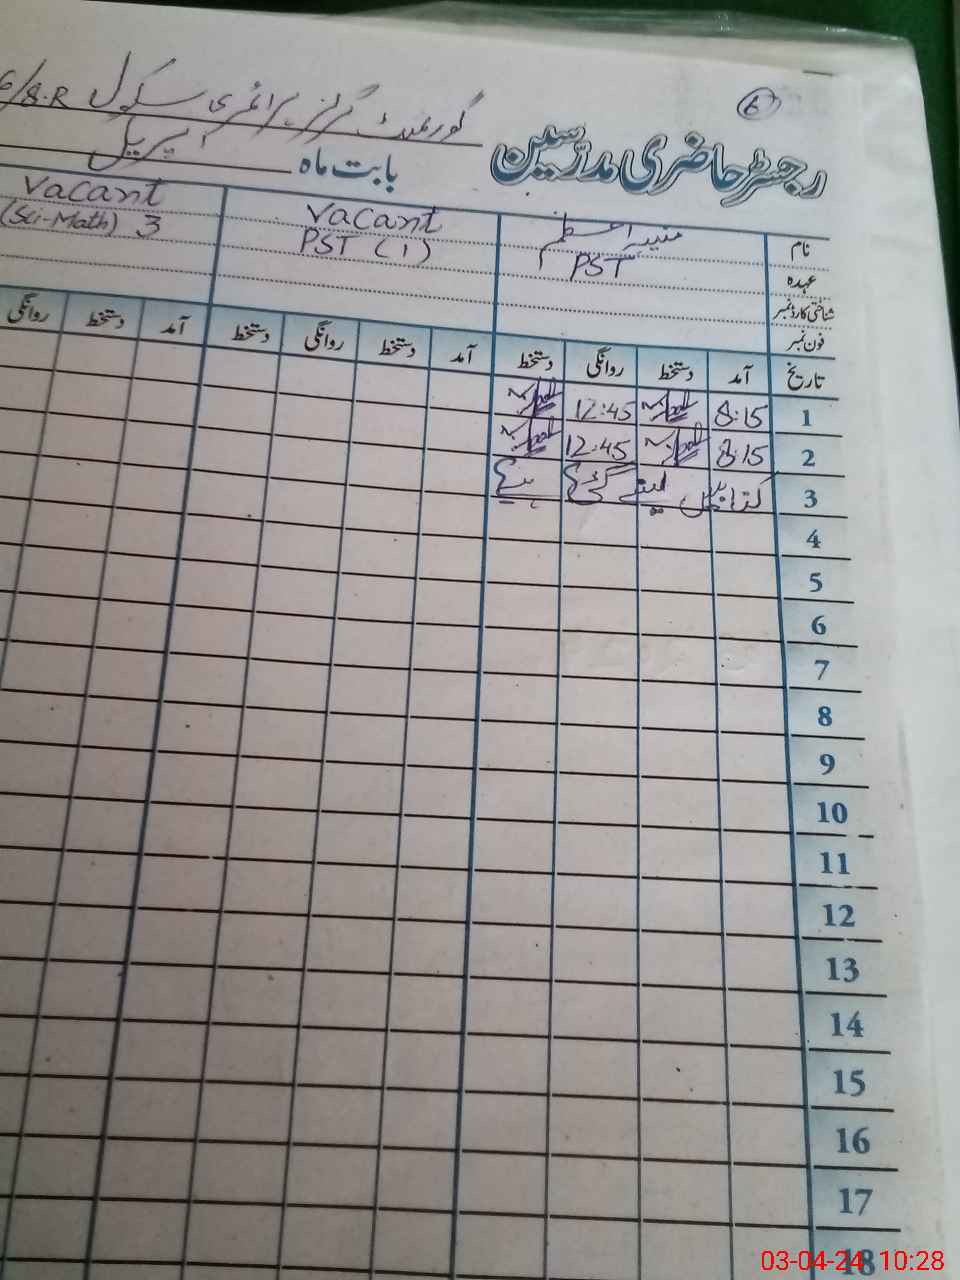 6
گورنمنٹ گرلز پرائمری سکول 6/8.R
رجسٹر حاضری مدرسین
بابت ماہ اپریل
نام منیبہ اعظم Vacant Vacant
عہدہ PST PST (1) (Sci-Math) 3
شناختی کارڈ نمبر
فون نمبر
تاریخ آمد دستخط روانگی دستخط آمد دستخط روانگی دستخط آمد دستخط روانگی
1 8:15 12:45
2 8:15 12:45
3 کتابیں لینے گئے ہیں
4
5
6
7
8
9
10
11
12
13
14
15
16
17
18
03-04-24 10:28